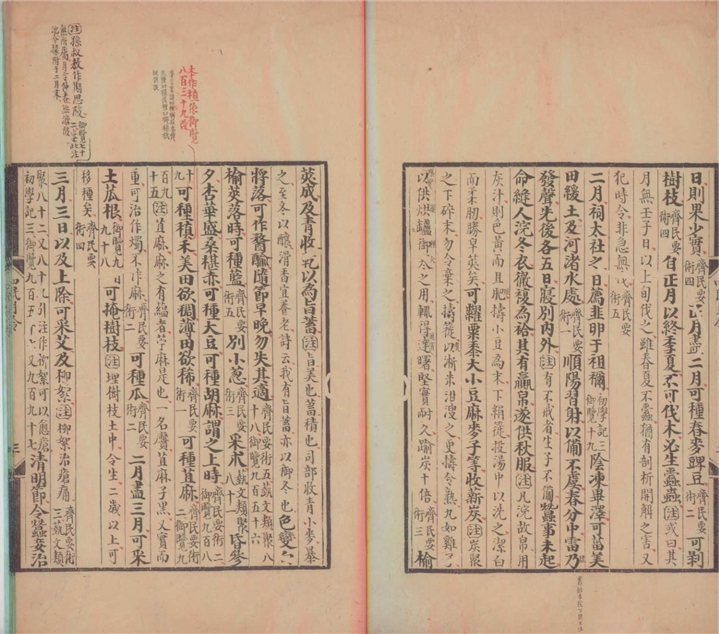 日則果少實齊民要術四正月盡二月可種春麥豍豆齊民要術二可剝
樹枝齊民要術四自正月以終季夏不可伐木必生蠹蟲注或曰其
月無壬子日以上旬伐之雖春夏不蠹猶有剖析閒解之害又
犯時令非急無齊民要術五
二月祠太社之日薦韭卵于祖禰初學記三御覽十九陰凍畢澤可菑美
田緩土及河渚水處齊民要術一順陽習射以備不虞春分中雷乃
發聲先後各五日寢別內外注有不戒者生子不備蠶事未起
命縫人浣冬衣徹複為袷其有羸帛遂供秋服注凡浣故帛用
灰汁則色黃而且脃擣小豆為末下絹簁投湯中以洗之潔白
而柔肕勝皁莢矣可糶粟黍大小豆麻麥子等收薪炭注炭聚
之下碎末勿令棄之擣簁以淅米泔溲之更擣令熟丸如雞子
以供烘爐御冬之用輒得達曙堅實耐久踰炭十倍齊民要術三榆
莢成及青收乾以為旨蓄注旨美也蓄積也司部收青小莢暴
之至冬以釀滑香宜養老詩云我有旨蓄亦以御冬也色變白
將落可作䤅䤊隨節早晚勿失其適齊民要術五藝文類聚八十八御覽九百五十六
榆莢落時可種藍齊民要術五別小蔥齊民要術三采朮藝文類聚八十一昏參
夕杏華盛桑椹赤可種大豆可種胡麻謂之上時齊民要術二御覽九
十九可種稙禾美田欲稠薄田欲稀齊民要術一可種苴麻齊民要術二御覽九百八
百九十五注苴麻麻之有蘊者苧麻是也一名黂苴麻子黑又實而
重可治作燭不作麻齊民要術二可種瓜齊民要術二二月盡三月可采
土瓜根御覽九百九十八可掩樹枝注埋樹枝土中令生二歲以上可
移種矣齊民要術四
三月三日以及上除可采艾及柳絮注柳絮治瘡痛齊民要術三藝文類
聚八十二初學記三御覽清明節令蠶妾治
八百三十九改
注孫叔敖作期思陂